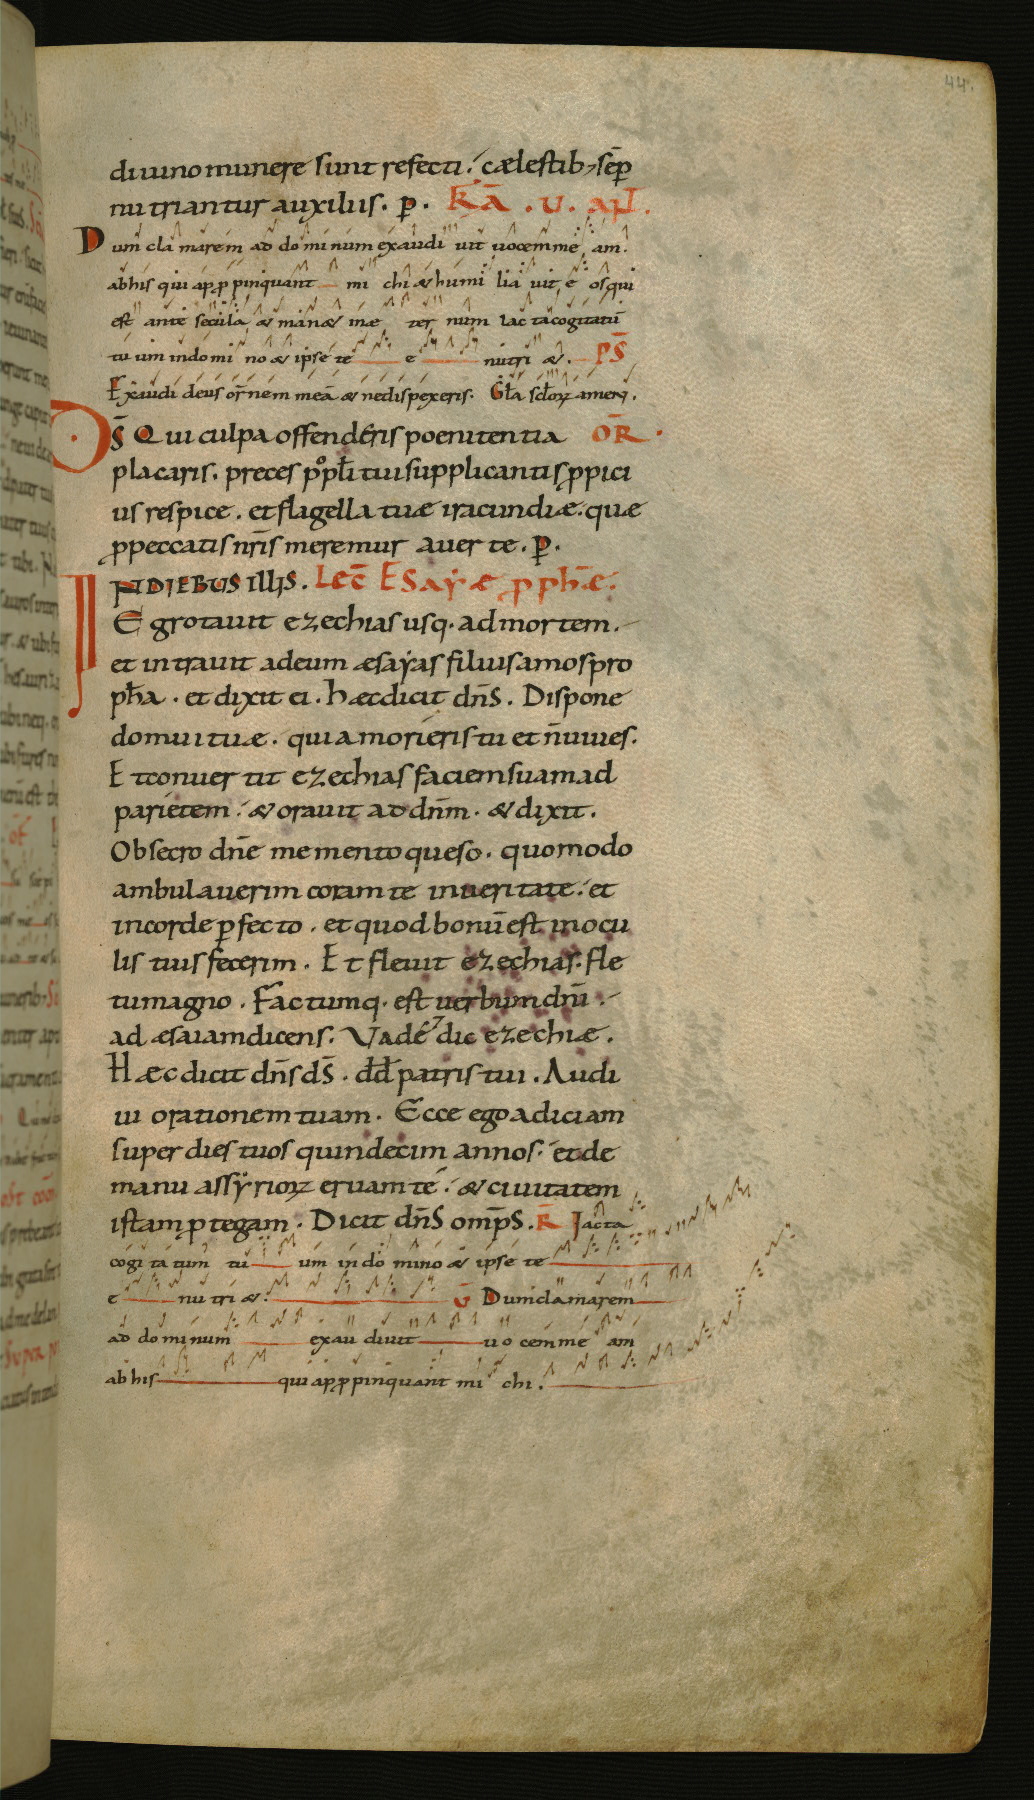 44.
diuino munere sunt refecti. cælestib; sēp
nutriantur auxiliis. p. F̄R̄Ā . U. APL.
Dum clamarem ad dominum exaudiuit uocem meam.
ab his qui appropinquant michi & humiliauit e os qui
est ante secula & man& inæternum Iacta cogitatū
tuum in domino & ipse te e nutri&. PS̄
Exaudi deus or̄nem meā & ne dispexeris. Gl̄a sclorꝫ amen.
DS̄ Qui culpa offenderis poenitentia OR̄.
placaris. preces pop̄li tui supplicantis ꝓpici
us respice. et flagella tuæ iracundiæ. quæ
ꝓ peccatis nr̄is meremur auerte. p.
IN DIEBUS ILLIS. Lec̄ Esayæ ꝓph̄æ.
Egrotauit ezechias usq. ad mortem.
et intrauit ad eum æsayas filius amos pro
ph̄a. et dixit ei. hæc dicit dn̄s. Dispone
domui tuæ. quia morieris tu et n̄ uiues.
Et conuertit ezechias faciem suam ad
parietem. & orauit ad dn̄m. & dixit.
Obsecro dn̄e memento queso. quomodo
ambulauerim coram te in ueritate. et
in corde ꝑfecto. et quod bonū est in ocu
lis tuis fecerim. Et fleuit ezechias. fle
tu magno. Factumq. est uerbum dn̄i.
ad æsaiam dicens. Vade & dic ezechiæ.
Hæc dicit dn̄s dS̄. dd̄ patris tui. Audi
ui orationem tuam. Ecce ego adiciam
super dies tuos quindecim annos. et de
manu assyriorꝫ eruam te. & ciuitatem
istam ꝓtegam. Dicit dn̄S omp̄S. R̄ Iacta
cogitatum tuum in domino & ipse te
e nutri&. V̄ Dum clamarem
ad dominum exaudiuit uocem meam
ab his qui appropinquant michi.